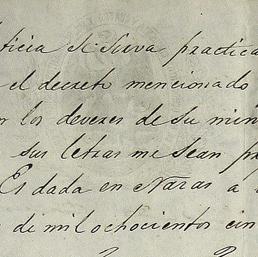 ticia se sirva practica
el decreto mencionado
or los deveres de su min
sus letras me sean pr
Es dada en Naras a
de mil ochocientos cin